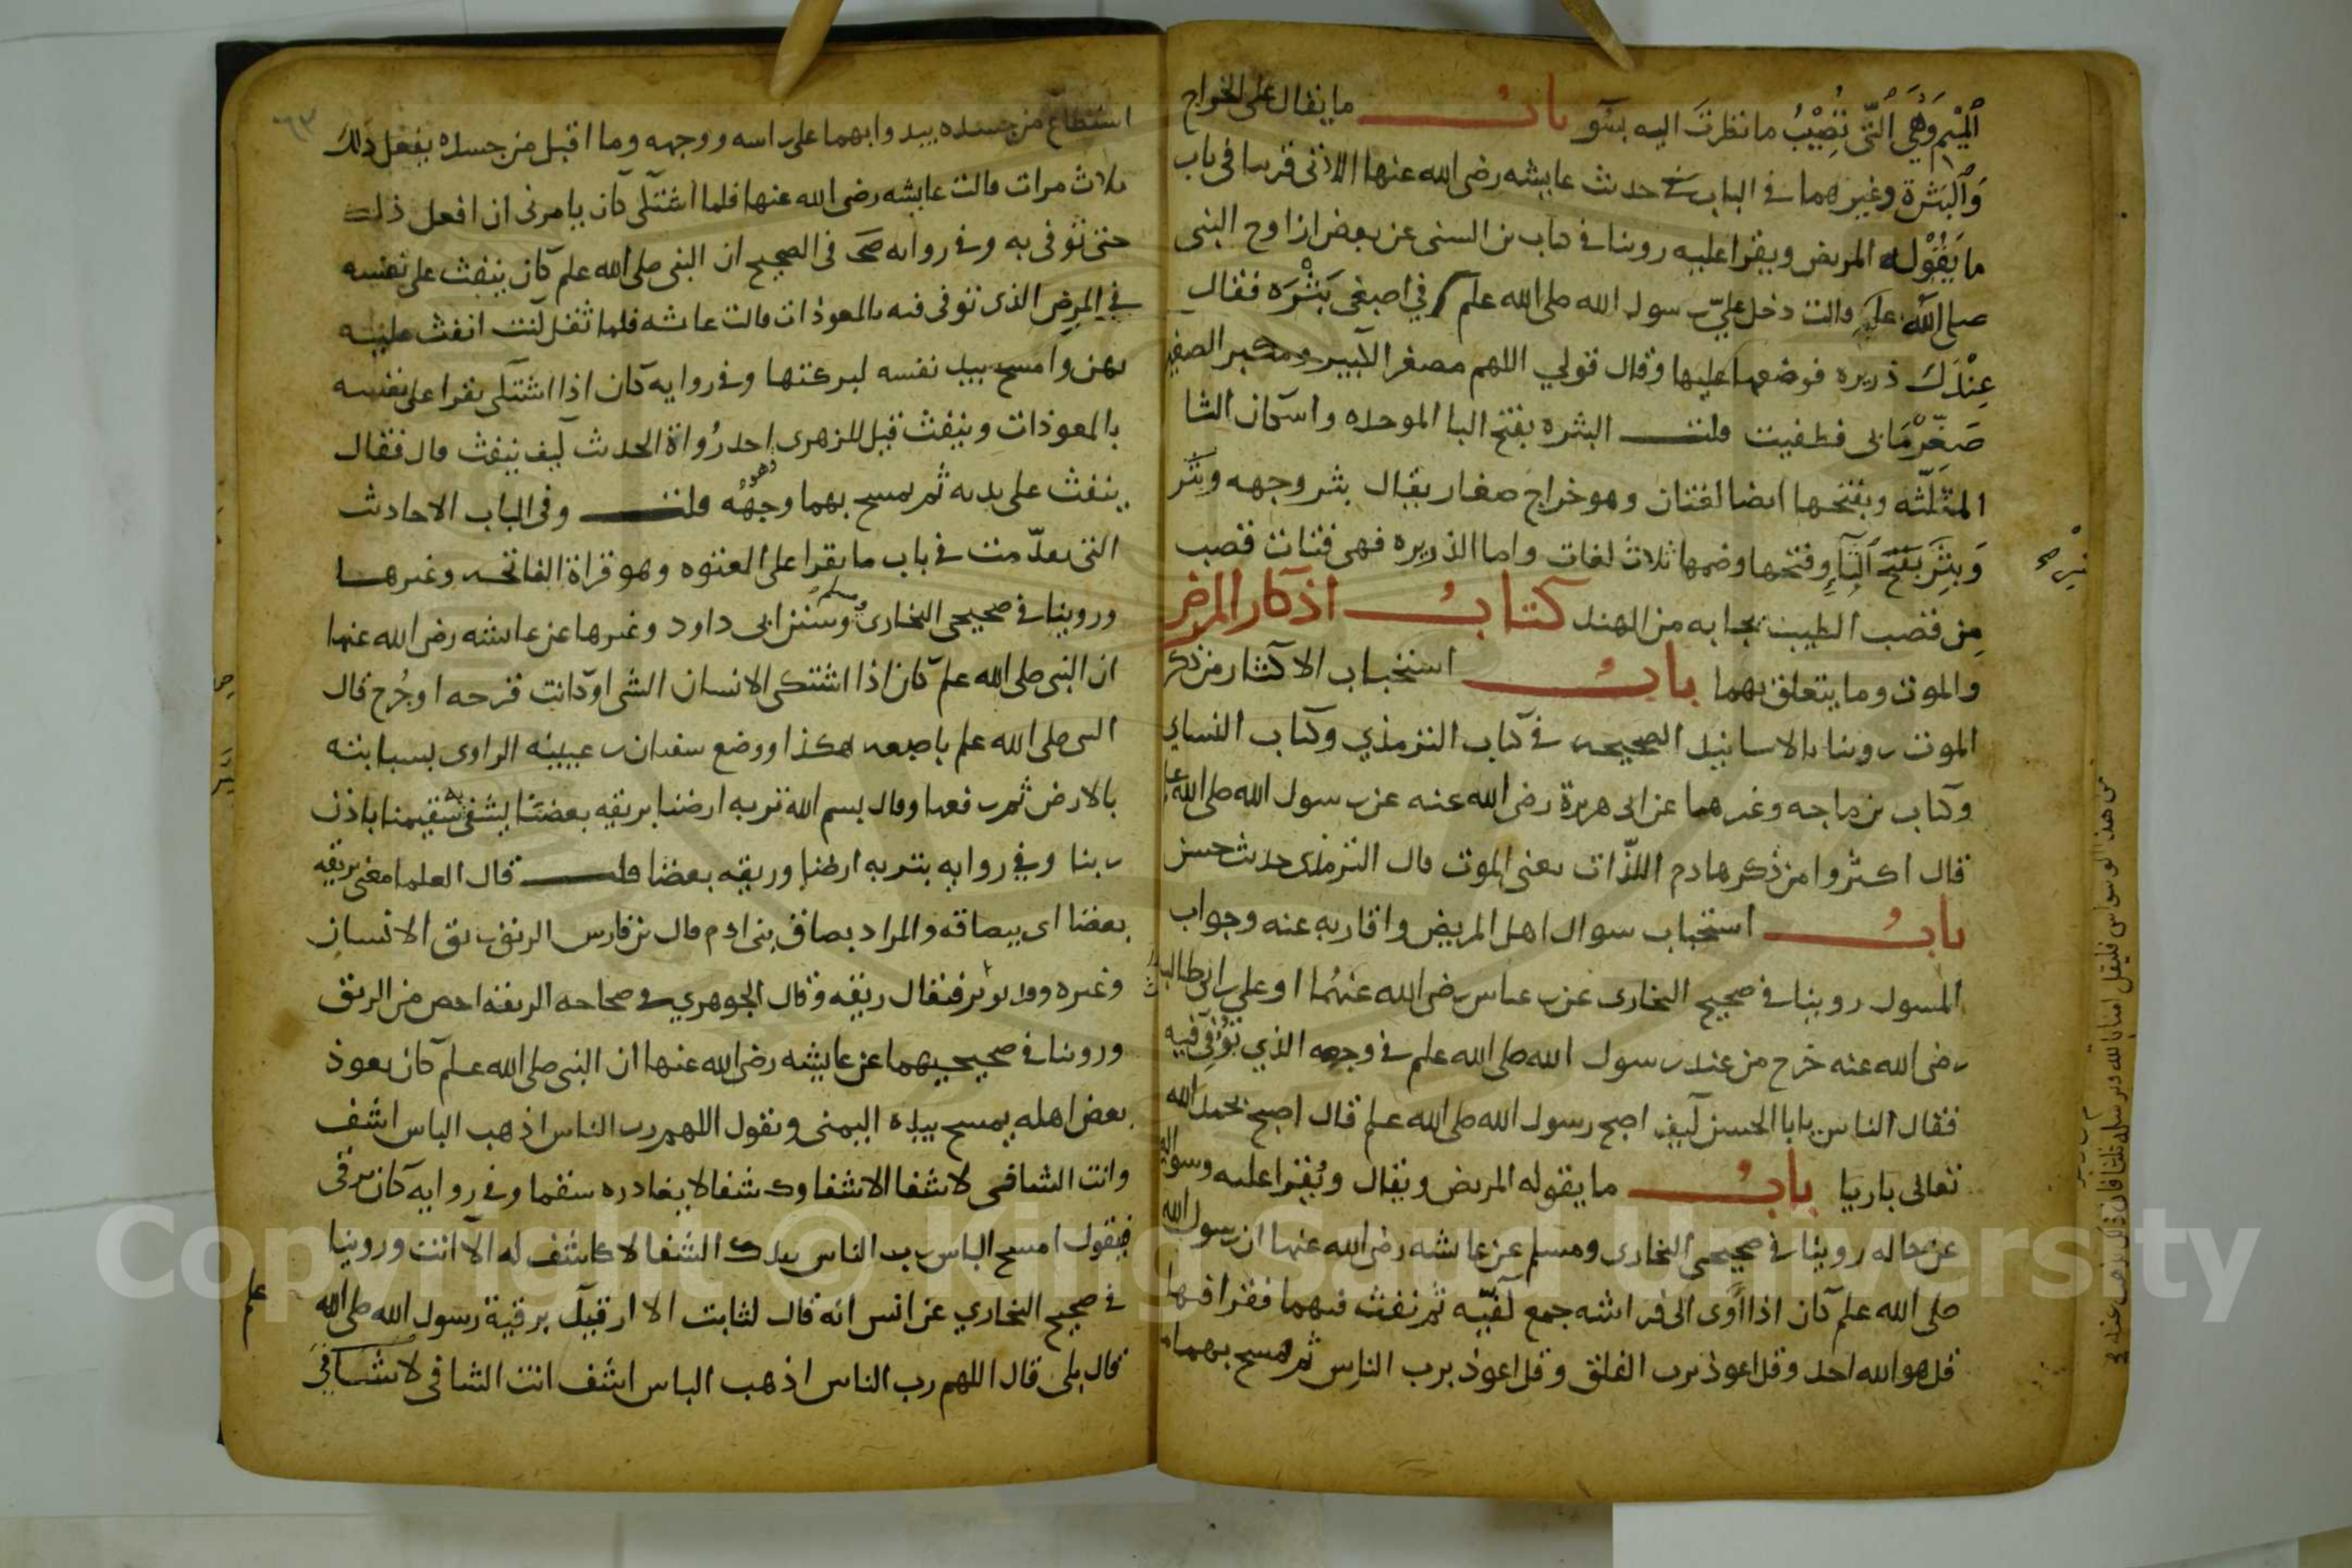 الميم وهي التي تصيب ما نظرت اليه بسو باب ما يقال على الخراج
والبثرة وغيرهما في الباب حديث عايشه رضي الله عنها الاتي قريبا في باب
ما يقوله المريض ويقرا عليه روينا في كتاب بن السني عن بعض ازاوج النبي
صلى الله علم قالت دخل علي رسول الله صلى الله علم وفي اصبعي بثره فقال
عندك ذريره فوضعها عليها وقال قولي اللهم مصغر الكبير ومكبر الصغير
صغر ما بي فطفيت قلت البثره بفتح البا الموحده واسكان الثا
المثلثه وبفتحها ايضا لغتان وهو خراج صغار يقال بثر وجهه وبثر
وبثر بفتح الثاء وفتحها وضمها ثلاث لغات واما الذريره فهي فتات قصب
من قصب الطيب يجا به من الهند كتاب اذكار المرض
والموت وما يتعلق بهما باب استحباب الاكثار من ذكر
الموت روينا بالاسانيد الصحيحه في كتاب الترمذي وكتاب النساي
وكتاب بن ماجه وغيرهما عن ابي هريرة رضي الله عنه عن رسول الله صلى الله علم
قال اكثروا من ذكر هادم اللذات يعني الموت قال الترمذي حديث حسن
باب استحباب سوال اهل المريض واقاربه عنه وجواب
المسول روينا في صحيح البخاري عن بن عباس رضي الله عنهما ان علي بن ابي طالب
رضي الله عنه خرج من عند رسول الله صلى الله علم في وجعه الذي توفي فيه
فقال الناس يابا الحسن كيف اصبح رسول الله صلى الله علم قال اصبح بحمد الله
تعالى باريا باب ما يقوله المريض ويقال ويقرا عليه وسواله
عن حاله روينا في صحيحي البخاري ومسلم عن عايشه رضي الله عنها ان رسول الله
صلى الله علم كان اذا اوى الى فراشه جمع كفيه ثم نفث فيهما فقرا فيهما
قل هو الله احد وقل اعوذ برب الفلق وقل اعوذ برب الناس ثم يمسح بهما ما
استطاع من جسده يبدوا بهما على راسه ووجهه وما اقبل من جسده يفعل ذلك
ثلاث مرات قالت عايشه رضي الله عنها فلما اشتكى كان يامرني ان افعل ذلك
حتى توفي به وفي روايه في الصحيح ان النبي صلى الله علم كان ينفث على نفسه
في المرض الذي توفي فيه بالمعوذات قالت عايشه فلما ثقل كنت انفث عليه
بهن وامسح بيد نفسه لبركتها وفي روايه كان اذا اشتكى يقرا على نفسه
بالمعوذات وينفث قيل للزهري احد رواة الحديث كيف ينفث قال فقال
ينفث على يديه ثم يمسح بهما وجهه قلت وفي الباب الاحاديث
التي تقدمت في باب ما يقرا على المعتوه وهو قراة الفاتحه وغيرها
وروينا في صحيحي البخاري ومسلم وسنن ابي داود وغيرها عن عايشه رضي الله عنها
ان النبي صلى الله علم كان اذا اشتكى الانسان الشي او كانت قرحه او جرح قال
النبي صلى الله علم باصبعه هكذا ووضع سفيان بن عيينه الراوي بسبابته
بالارض ثم رفعها وقال بسم الله تربه ارضنا بريقه بعضنا يشفى به سقيمنا باذن
ربنا وفي روايه بتربه ارضنا وريقه بعضنا قلت قال العلما معنى بريقه
بعضنا اي ببصاقه والمراد بصاق بني ادم قال بن فارس الريق ريق الانسان
وغيره وقد يونث فيقال ريقه وقال الجوهري في صحاحه الريقه اخص من الريق
وروينا في صحيحيهما عن عايشه رضي الله عنها ان النبي صلى الله علم كان يعوذ
بعض اهله يمسح بيده اليمنى ويقول اللهم رب الناس اذهب الباس اشف
وانت الشافي لا شفا الا شفاوك شفا لا يغادره سقما وفي روايه كان يرقى
فيقول امسح الباس رب الناس بيدك الشفا لا كاشف له الا انت وروينا
في صحيح البخاري عن انس انه قال لثابت الا ارقيك برقية رسول الله صلى الله
علم
قال بلى قال اللهم رب الناس اذهب الباس اشف انت الشافي لا شافي
Copyright © King Saud University